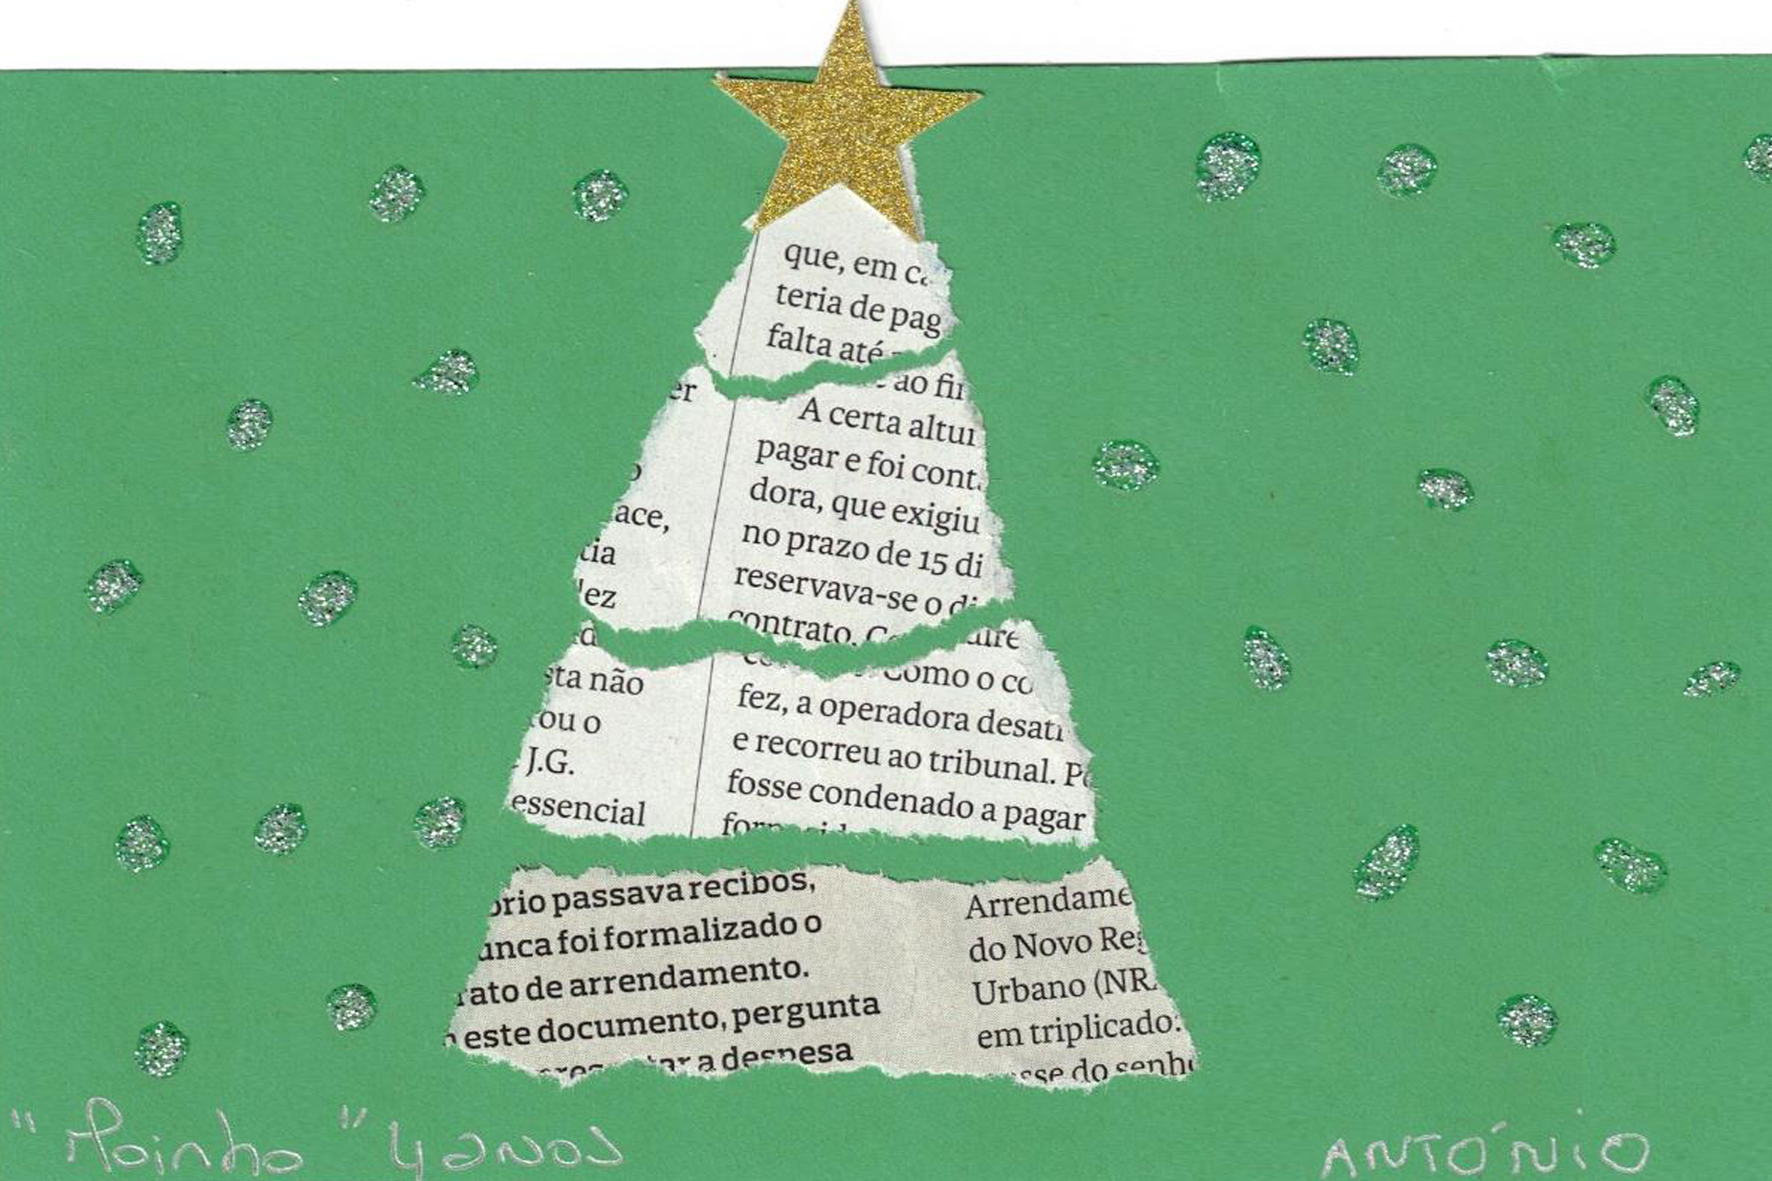 que, em
teria de pag
falta até
er
ao fi
A certa altu
pagar e foi cont
dora, que exigiu
ace,
no prazo de 15 di
tia
reservava-se o di
ez
contrato. C
d
dire
sta não
omo o co
ou o
fez, a operadora desat
J.G.
e recorreu ao tribunal. P
essencial
fosse condenado a pagar
ório passava recibos,
unca foi formalizado o
rato de arrendamento.
este documento, pergunta
tar a despesa
Arrendame
do Novo Reg
Urbano (NR
em triplicado:
sse do senh
"Moinho" 4 anos
ANTÓNIO